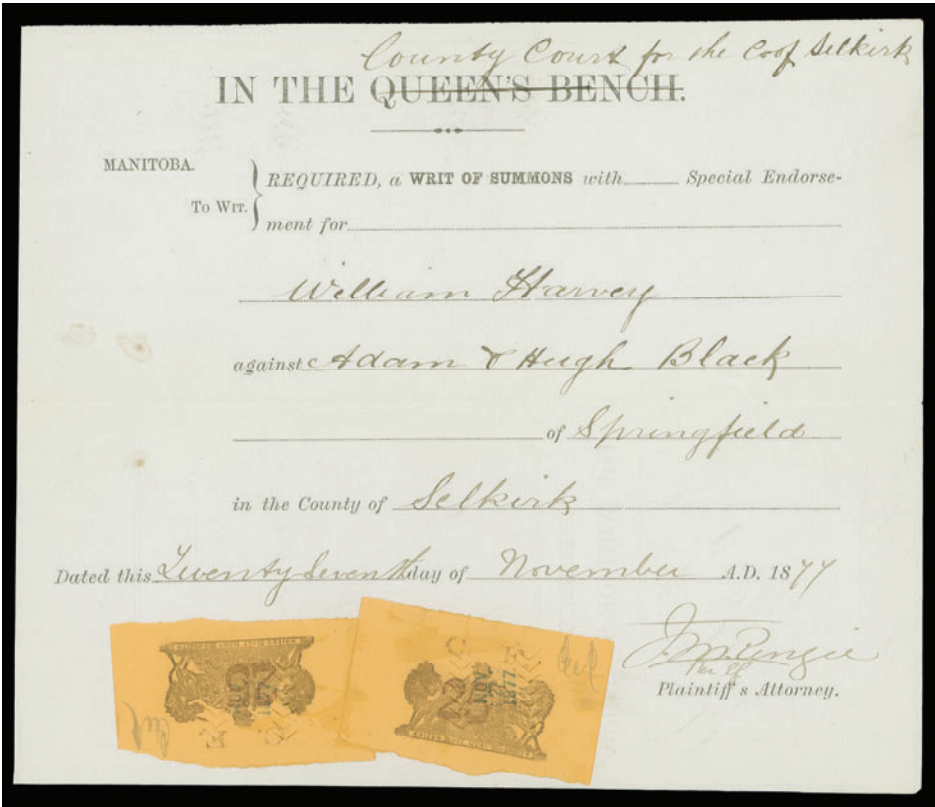 County Court for the Co of Selkirk
IN THE QUEEN'S BENCH.
MANITOBA.
To Wit.
REQUIRED, a WRIT OF SUMMONS with Special Endorse-
ment for
William Harvey
against Adam & Hugh Black
of Springfield
in the County of Selkirk
Dated this Twenty Seventh day of November A.D. 1877
Plaintiff's Attorney.
NOV
1877